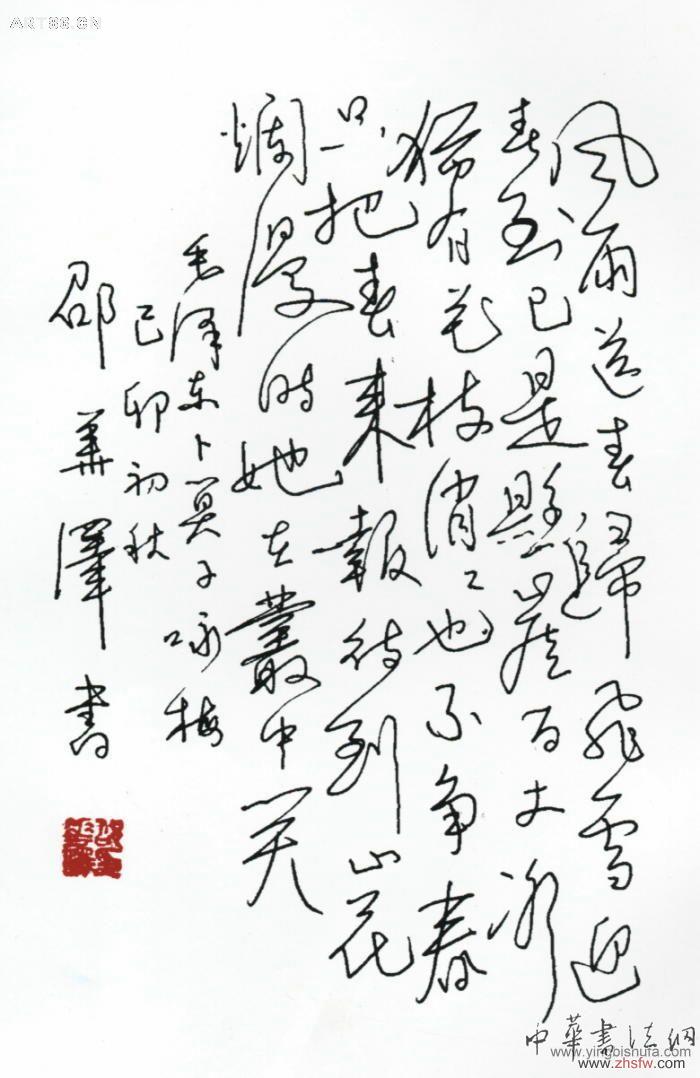 风雨送春歸飛雪迎
春到已是懸崖百丈冰
猶有花枝俏俏也不争春
只把春来報待到山花
爛漫时她在叢中笑
毛泽东卜算子咏梅
己卯初秋
邵華澤書
中華書法網
www.yingbishufa.com
www.zhsfw.com